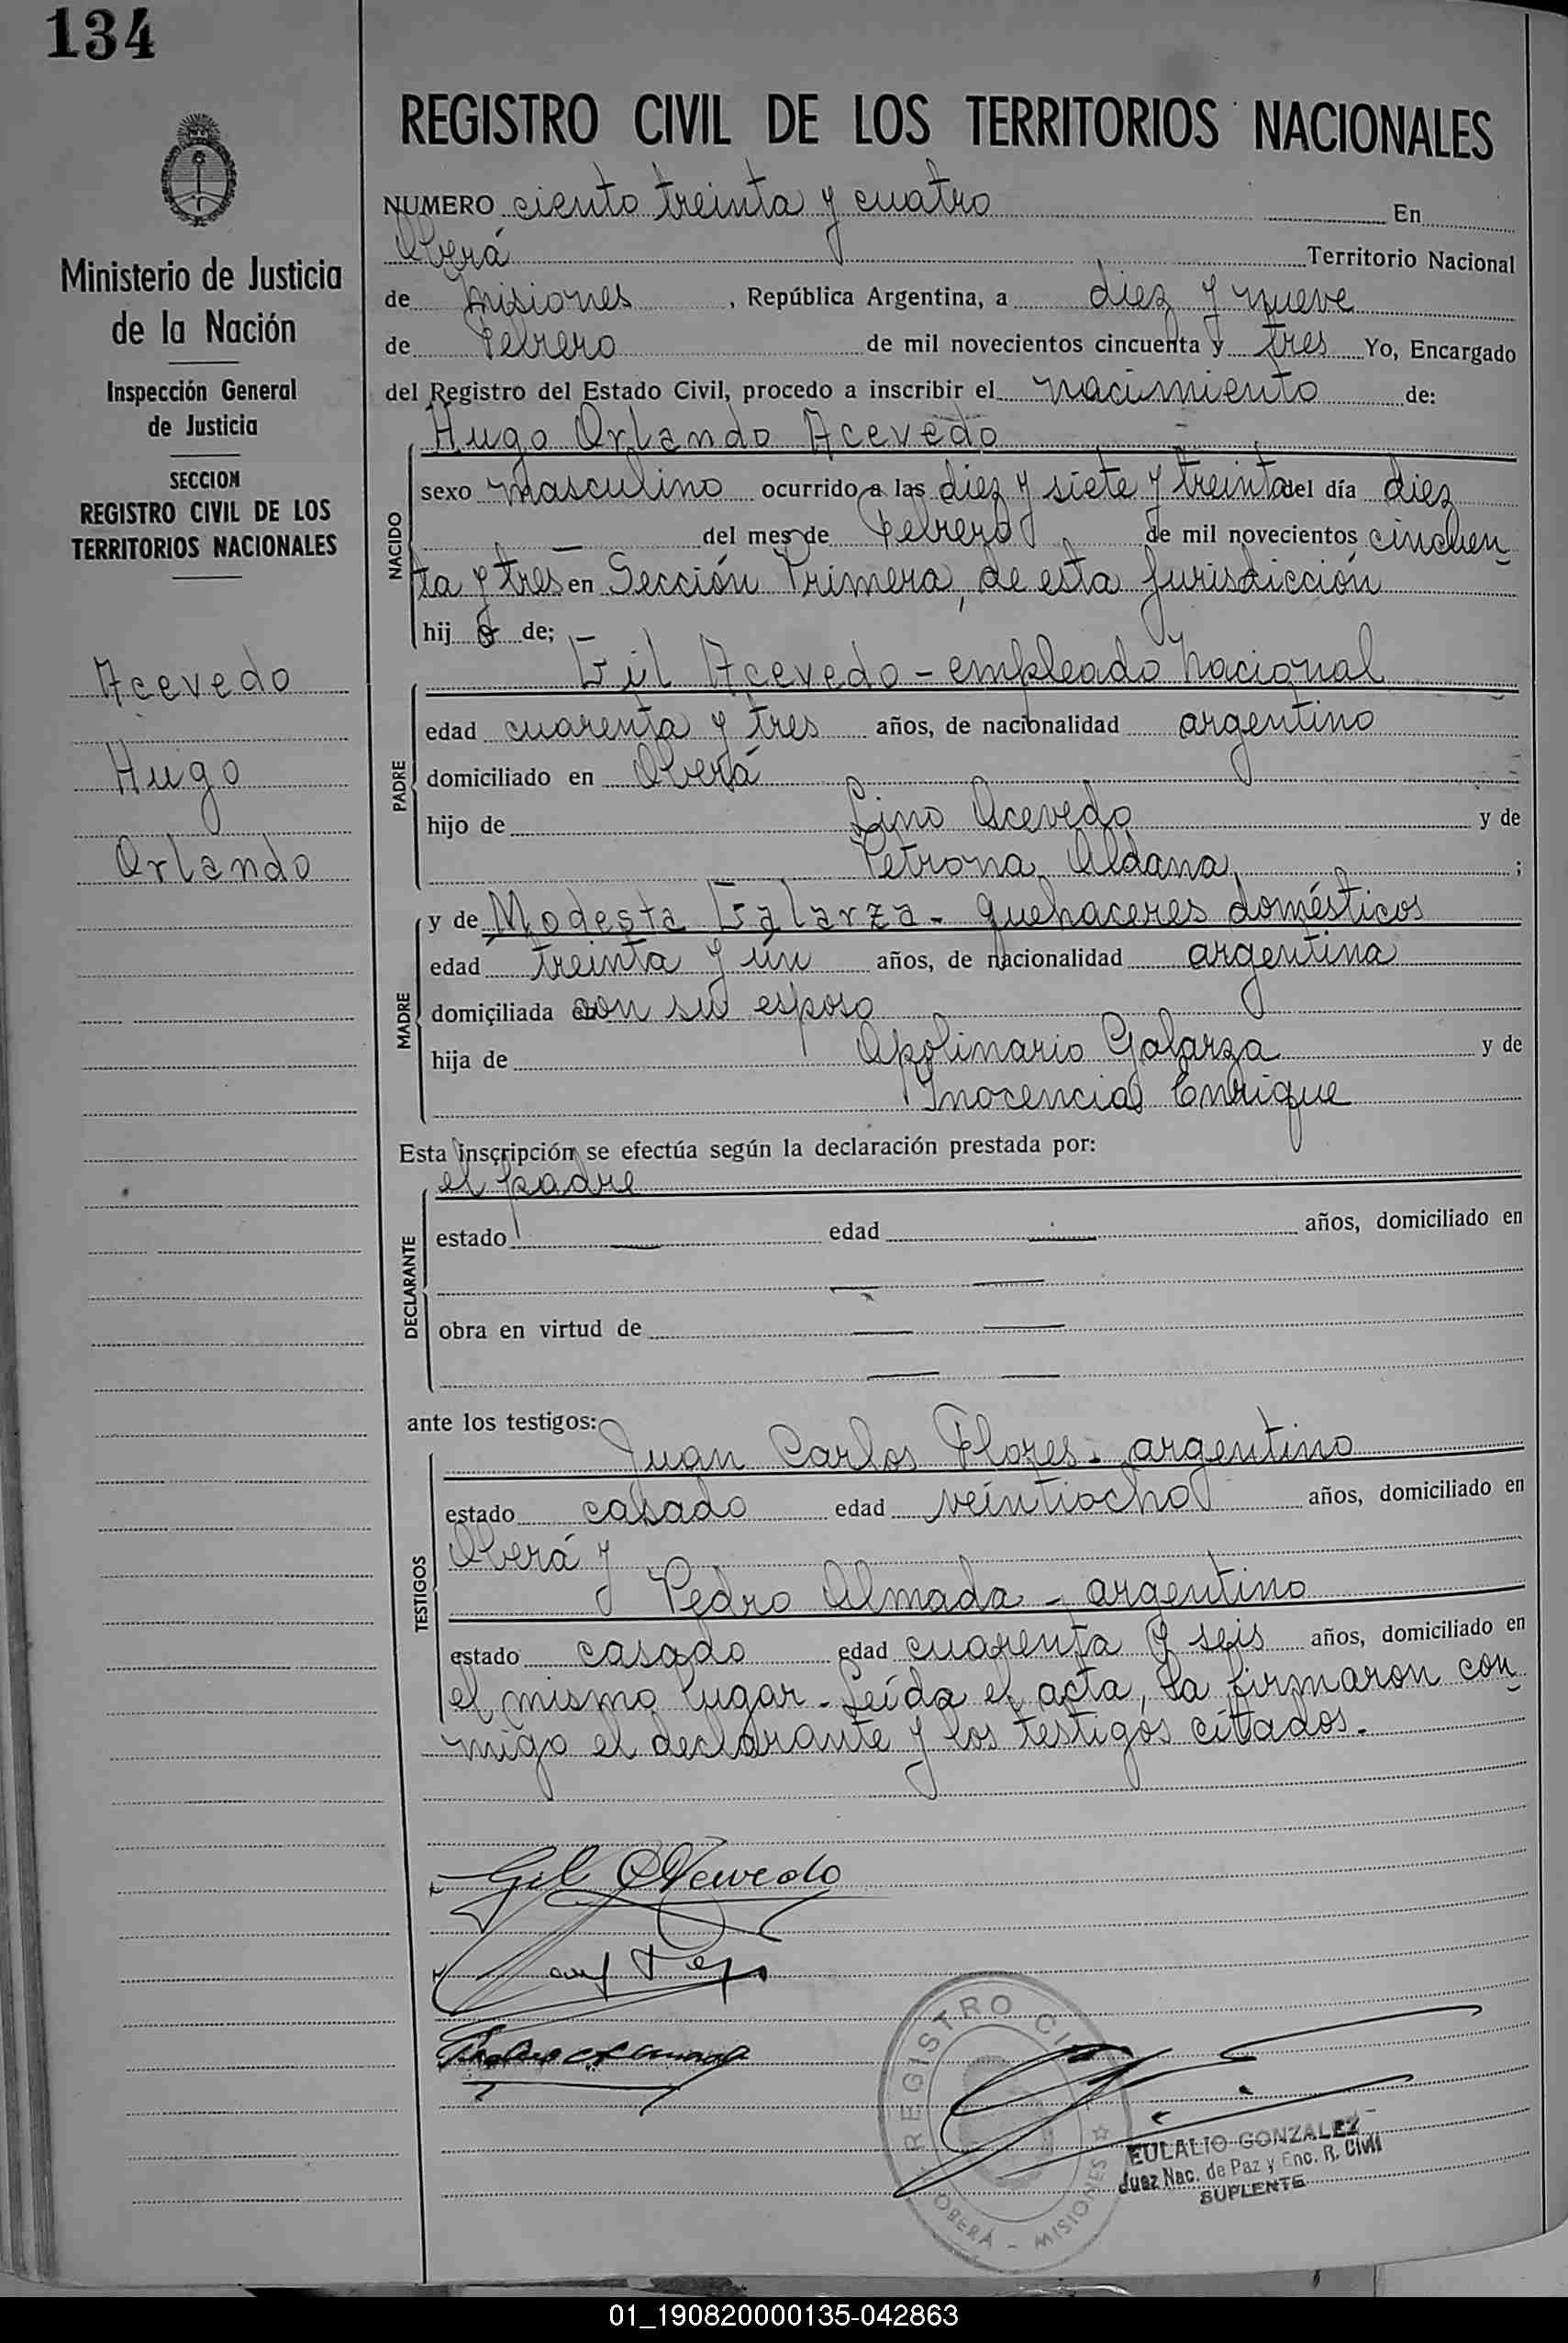 134
REGISTRO CIVIL DE LOS TERRITORIOS NACIONALES
Ministerio de Justicia
de la Nación
Inspección General
de Justicia
SECCION
REGISTRO CIVIL DE LOS
TERRITORIOS NACIONALES
Acevedo
Hugo
Orlando
NUMERO ciento treinta y cuatro En
Oberá Territorio Nacional
de Misiones, República Argentina, a diez y nueve
de Febrero de mil novecientos cincuenta y tres Yo, Encargado
del Registro del Estado Civil, procedo a inscribir el nacimiento de:
Hugo Orlando Acevedo
NACIDO
sexo masculino ocurrido a las diez y siete y treinta del día diez
del mes de Febrero de mil novecientos cincuen
ta y tres en Sección Primera, de esta jurisdicción
hijo de;
PADRE
Gil Acevedo - empleado Nacional
edad cuarenta y tres años, de nacionalidad argentino
domiciliado en Oberá
hijo de Lino Acevedo y de
Petrona Aldana;
MADRE
y de Modesta Galarza - quehaceres domésticos
edad treinta y un años, de nacionalidad argentina
domiciliada con su esposo
hija de Apolinario Galarza y de
Inocencia Enrique
Esta inscripción se efectúa según la declaración prestada por:
DECLARANTE
el padre
estado — edad — años, domiciliado en
— —
obra en virtud de — —
— —
ante los testigos:
TESTIGOS
Juan Carlos Flores - argentino
estado casado edad veintiocho años, domiciliado en
Oberá y
Pedro Almada - argentino
estado casado edad cuarenta y seis años, domiciliado en
el mismo lugar - Leída el acta, la firmaron con
migo el declarante y los testigos citados.-
Gil Acevedo
REGISTRO CIVIL
OBERÁ - MISIONES
EULALIO GONZALEZ
Juez Nac. de Paz y Enc. R. Civil
SUPLENTE
01_190820000135-042863